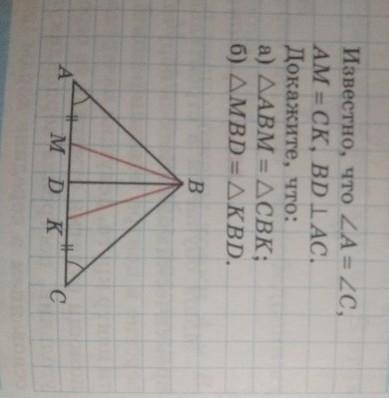 Известно, что ∠A = ∠C,
AM = CK, BD ⊥ AC.
Докажите, что:
а) △ABM = △CBK;
б) △MBD = △KBD.
B
A M D K C